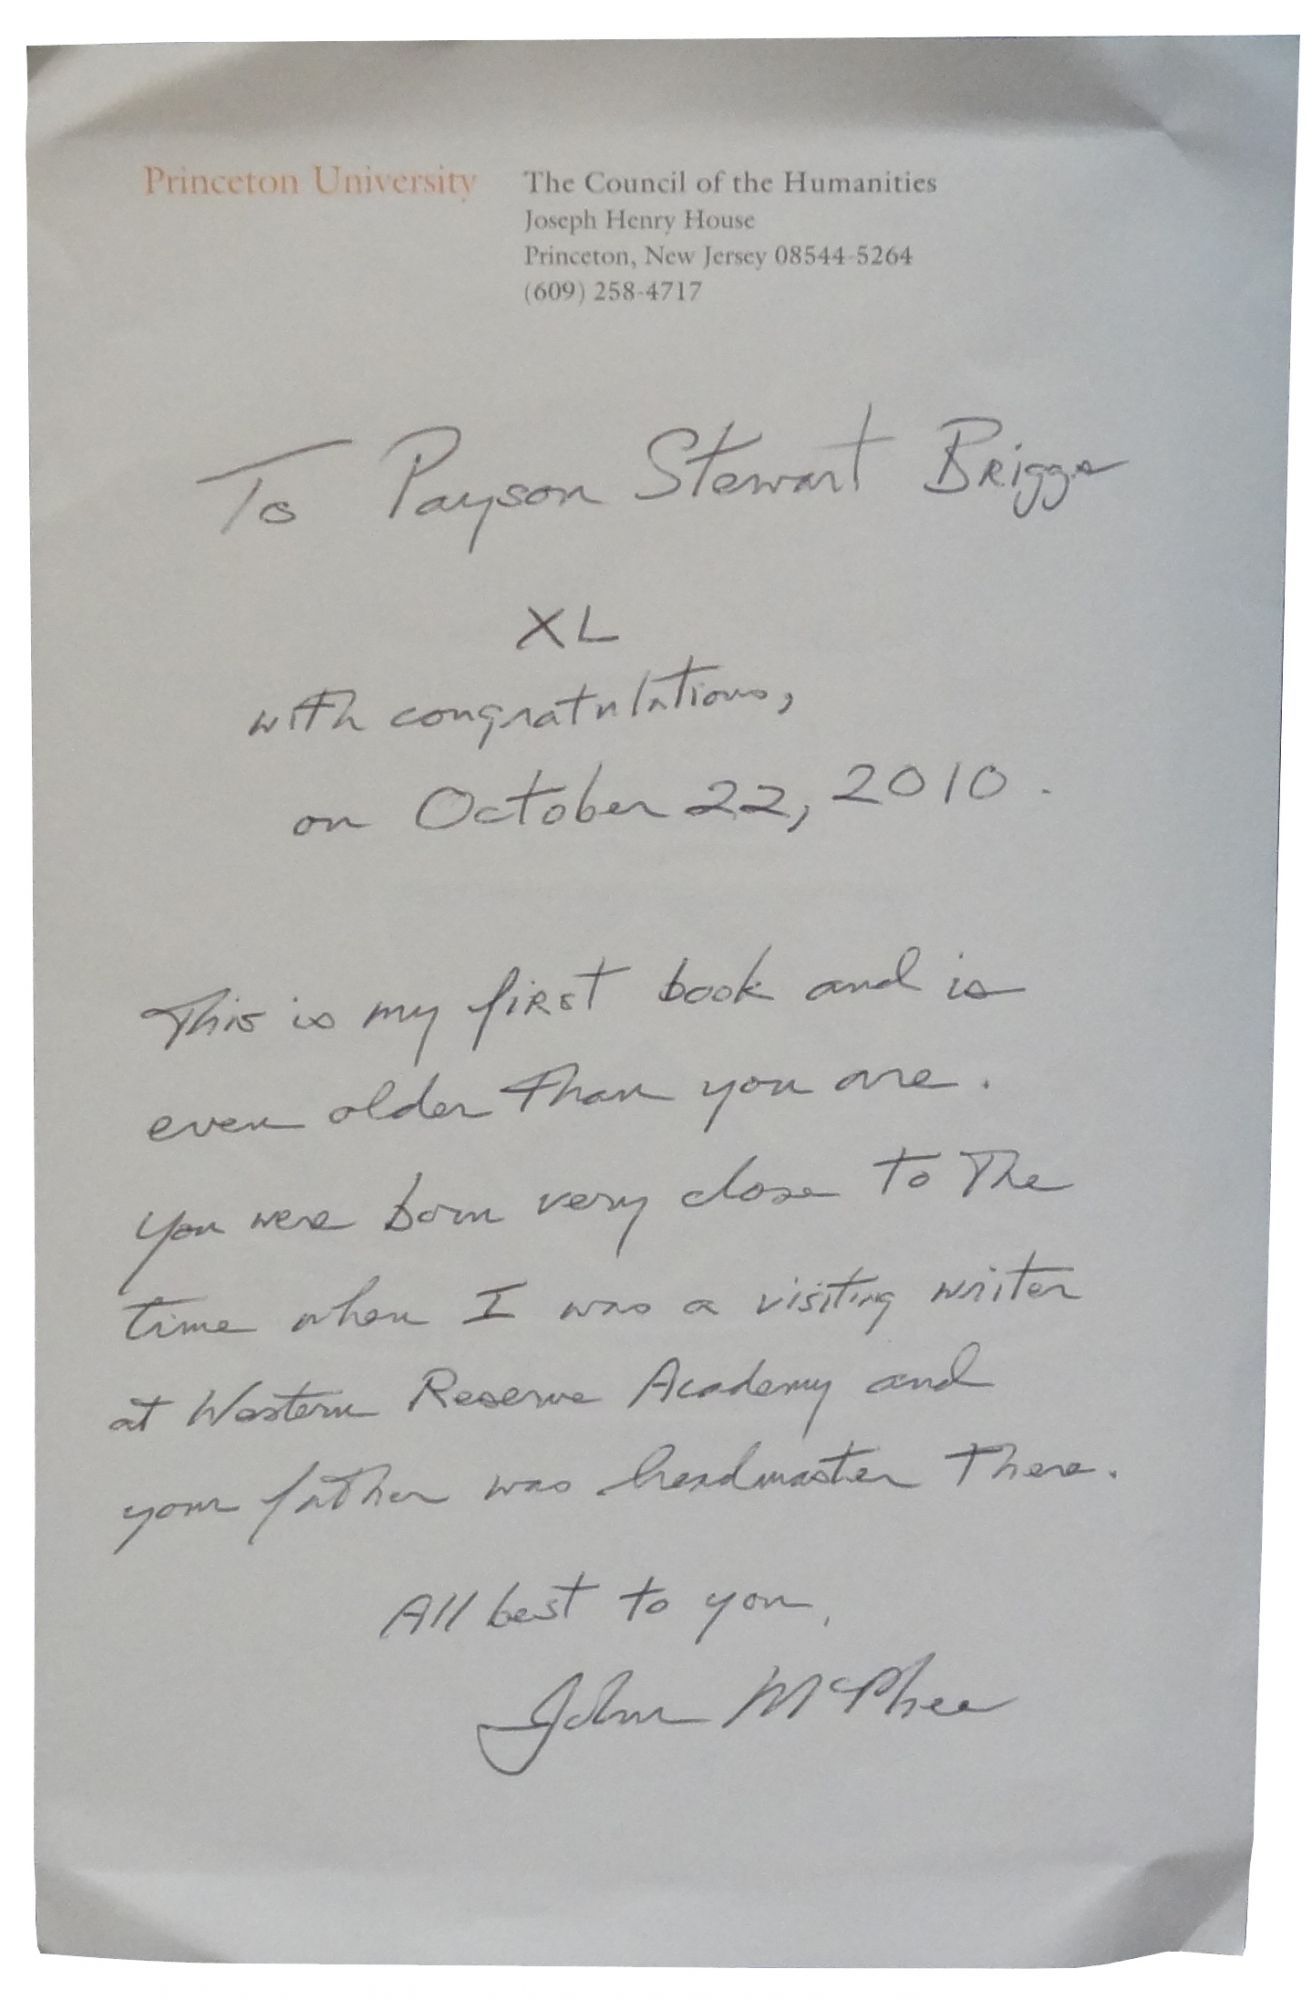 Princeton University
The Council of the Humanities
Joseph Henry House
Princeton, New Jersey 08544-5264
(609) 258-4717
To Payson Stewart Briggs
XL
with congratulations,
on October 22, 2010.
This is my first book and is
even older than you are.
You were born very close to the
time when I was a visiting writer
at Western Reserve Academy and
your father was headmaster there.
All best to you,
John McPhee